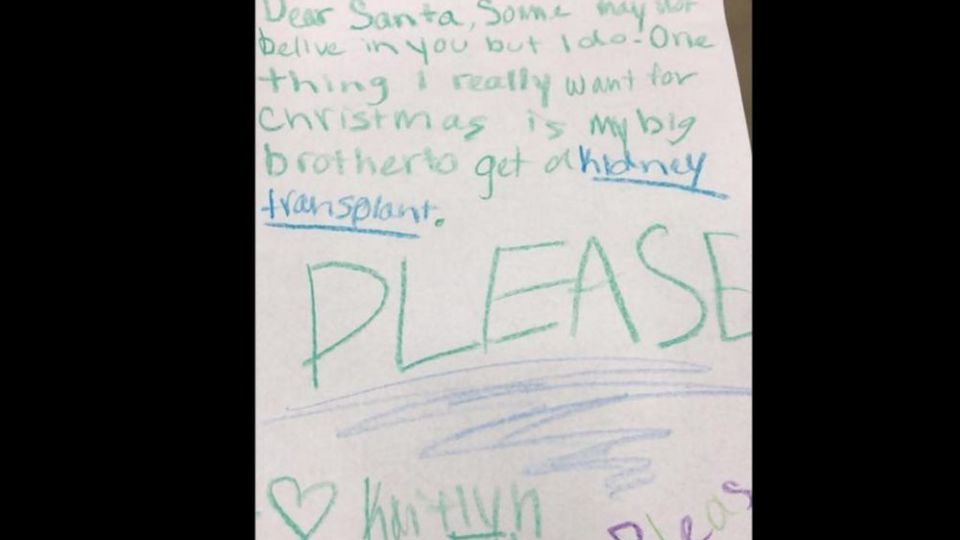 Dear Santa, Some may not
belive in you but I do! One
thing i really want for
Christmas is my big
brother to get a kidney
transplant.
PLEASE
♡ Kaitlyn
Pleas